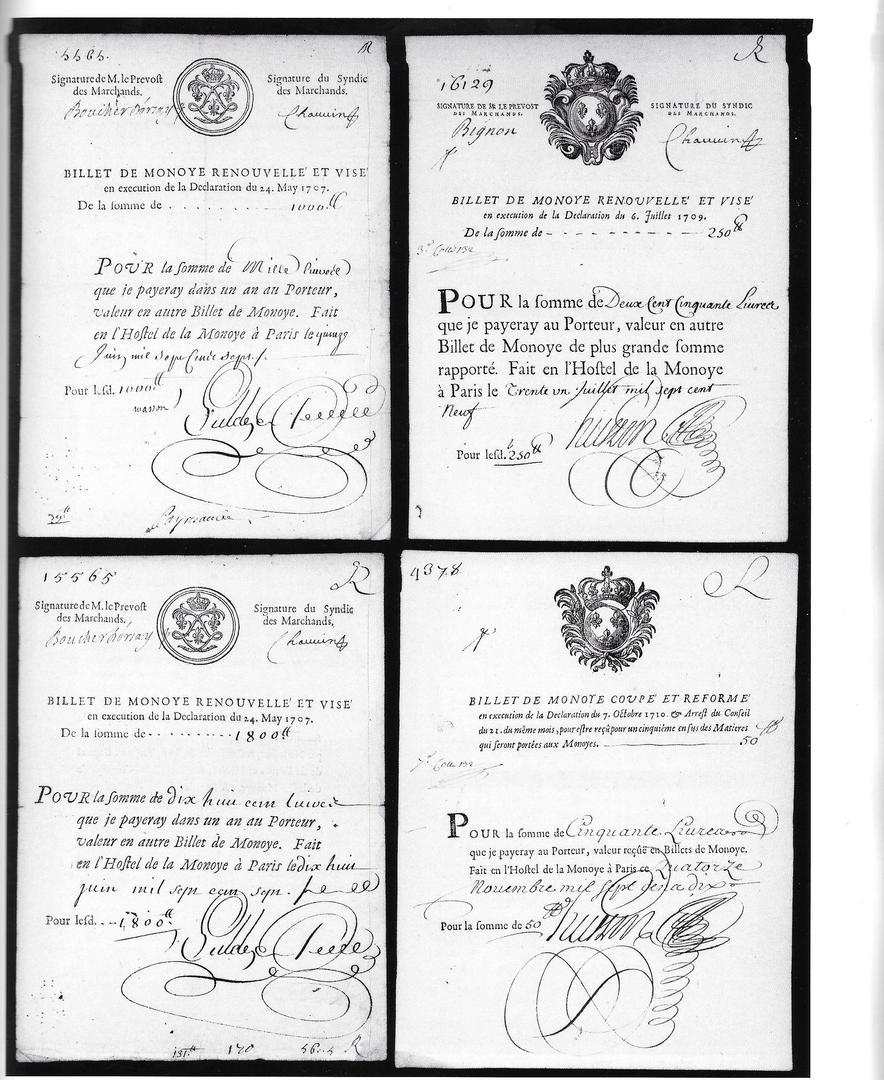 5565.
R
Signature de M. le Prevost
des Marchands.
Boucher Dorsay
Signature du Syndic
des Marchands.
Chauvin
BILLET DE MONOYE RENOUVELLE' ET VISE'
en execution de la Declaration du 24. May 1707.
De la somme de . . . . . . . . - . . 1000 ₶
POUR la somme de Mille Livres
que je payeray dans un an au Porteur,
valeur en autre Billet de Monoye. Fait
en l'Hostel de la Monoye à Paris le quinze
Juin mil sept cent sept.
Pour lesd. 1000 ₶
16129
R
SIGNATURE DE M. LE PREVOST
DES MARCHANDS.
Bignon
SIGNATURE DU SYNDIC
DES MARCHANDS.
Chauvin
BILLET DE MONOYE RENOUVELLE' ET VISE'
en execution de la Declaration du 6. Juillet 1709.
De la somme de - - - - - - - - - - 250 ₶
POUR la somme de Deux Cent Cinquante Livres
que je payeray au Porteur, valeur en autre
Billet de Monoye de plus grande somme
rapporté. Fait en l'Hostel de la Monoye
à Paris le Trente un Juillet mil sept cent
Neuf
Pour lesd. 250 ₶
15565
R
Signature de M. le Prevost
des Marchands.
Boucher Dorsay
Signature du Syndic
des Marchands.
Chauvin
BILLET DE MONOYE RENOUVELLE' ET VISE'
en execution de la Declaration du 24. May 1707.
De la somme de - . . . . . . . . 1800 ₶
POUR la somme de dix huit cent livres
que je payeray dans un an au Porteur,
valeur en autre Billet de Monoye. Fait
en l'Hostel de la Monoye à Paris le dix huit
juin mil sept cent sept.
Pour lesd. . . 1800 ₶
170
R
4378
BILLET DE MONOYE COUPE' ET REFORME'
en execution de la Declaration du 7. Octobre 1710. & Arrest du Conseil
du 21. du même mois, pour estre reçû pour un cinquième en sus des Matieres
qui seront portées aux Monoyes. 50 ₶
POUR la somme de Cinquante Livres
que je payeray au Porteur, valeur reçûë en Billets de Monoye.
Fait en l'Hostel de la Monoye à Paris ce Quatorze
Novembre mil sept cent dix
Pour la somme de 50 ₶